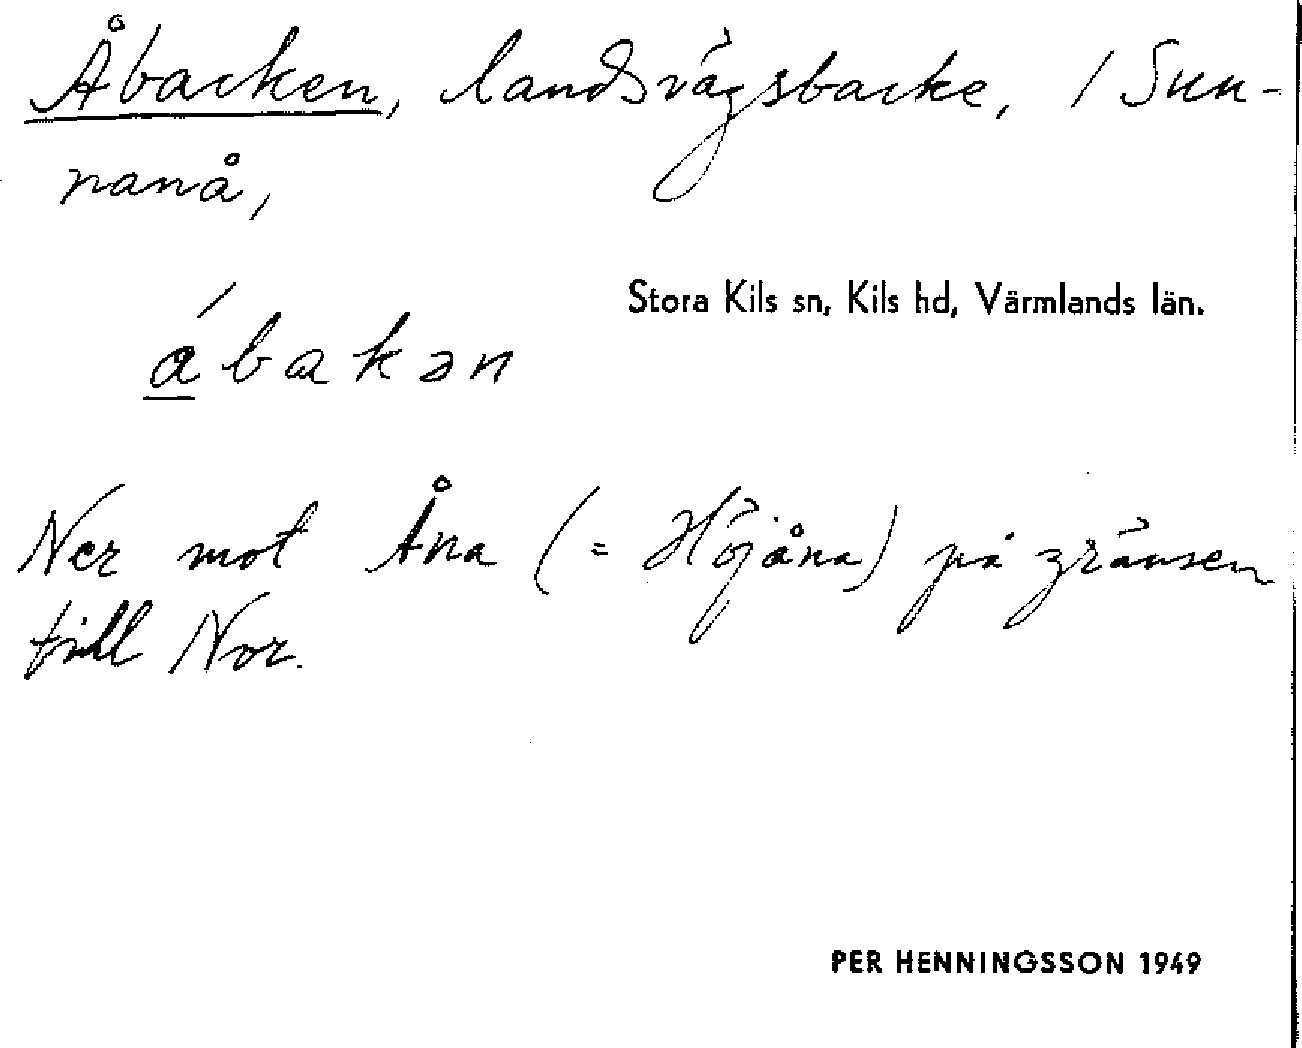 Åbacken, landsvägsbacke, / Sun-
nanå,
Stora Kils sn, Kils hd, Värmlands län.
ábakən
Ner mot Åna (= Höjåna) på gränsen
till Nor.
PER HENNINGSSON 1949